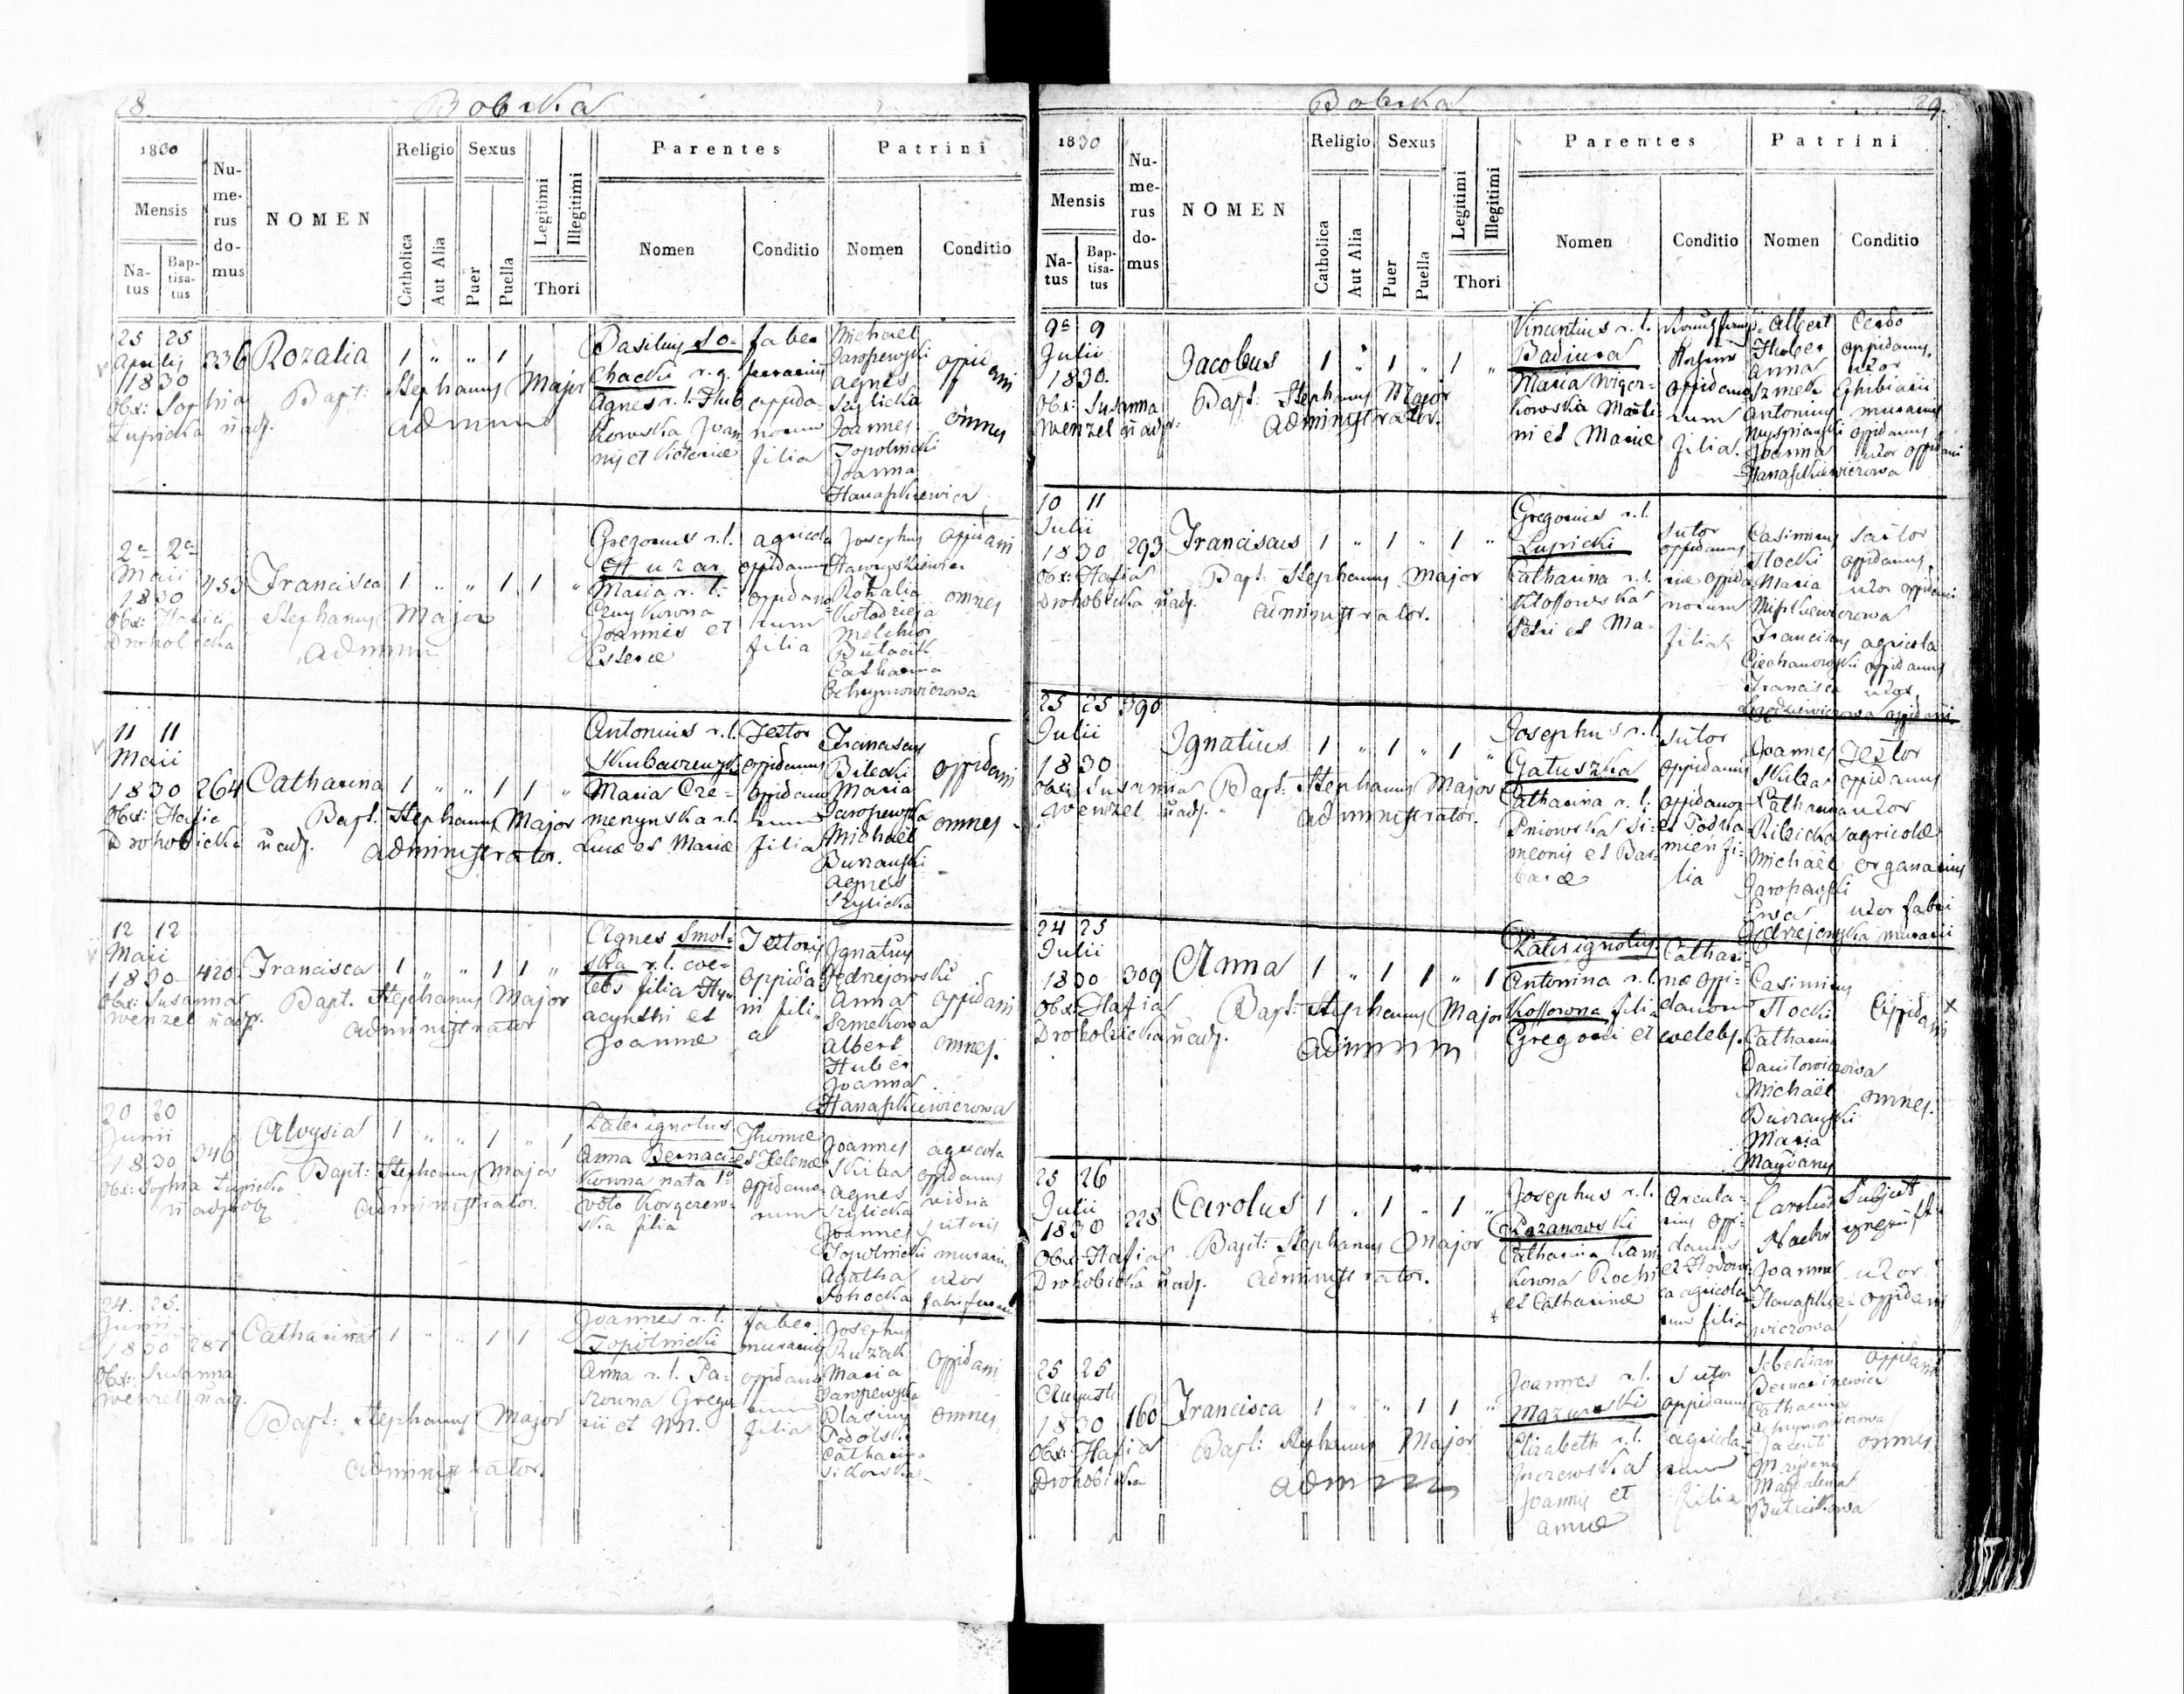 28.
Bobrka
1830
Mensis
Na-
tus
Bap-
tisa-
tus
Nu-
me-
rus
do-
mus
NOMEN
Religio
Catholica
Aut Alia
Sexus
Puer
Puella
Legitimi
Illegitimi
Thori
Parentes
Nomen
Conditio
Patrini
Nomen
Conditio
25 25
Aprilis
1830
Obs: Sophia
Lupicka
336
Rozalia
1 " " 1 1
Bapt: Stephanus Major
Admin
Basilius So-
chacki r. g.
Agnes r. l. Hub
kowska Joan
nis et Victoriae
faber
ferrarius
oppida-
norum
filia
Michael
Jaroszewski
Agnes
Szylicka
Joannes
Topolnicki
Joanna
Hanaszkiewicz
oppidani
omnes
2a 2a
Maii
1830
Obs: Hafia
Drohobicka
453
Francisca
1 " " 1 1 "
Stephanus Major
Admin
Gregorius r. l.
Maria r. l.
Joannes et
Esterae
agricola
oppidanus
oppidano-
rum
filia
Josephus
Rozalia
Kołodzieja
Melchior
Butacik
Catharina
Ochrymowiczowa
oppidani
omnes
11 11
Maii
1830
Obs: Hafia
Drohobicka uadj.
264
Catharina
1 " " 1 1 "
Bapt. Stephanus Major
Administrator.
Antonius r. l.
Maria Cze-
menynska r. l.
Lucae et Mariae
Textor
oppidanus
oppidano
rum
filia
Franciscus
Bilecki
Maria
Jaroszewska
Michael
Burzanski
Agnes
Szylicka
oppidani
omnes
12 12
Maii
1830
Obs: Susanna
Wenzel uadj.
420
Francisca
1 " " 1 1 "
Bapt. Stephanus Major
Administrator
Agnes Smol-
ska r. l. coe-
lebs filia Hy-
acynthi et
Joannae
Textoris
oppida
ni fili-
a
Ignatius
Jedrejowski
Anna
Szmekowa
Albert
Huber
Joanna
Hanaszkiewiczowa
oppidani
omnes.
20 20
Junii
1830
Obs: Sophia Lupicka
346
Aloysia
1 " " 1 " 1
Bapt: Stephanus Major
Administrator.
Pater ignotus.
Anna Bernaci-
kowna nata 1o
voto Korczew-
ska filia
Thomae
et Helenae
oppidano-
rum
Joannes
Skiba
Agnes
Szylicka
Joannes
Topolnicki
Agatha
Sohocka
agricola
oppidanus
vidua
sutoris
murarius
uxor
fabri ferrarii
24. 25.
Junii
1830
Obs: Susanna
Wenzel uadj.
287
Catharina
1 " " 1 1
Bapt: Stephanus Major
Administrator.
Joannes r. l.
Topolnicki
Anna r. l. Pa-
szowna Grego
rii et NN.
faber
murarius
oppidano
rum
filia
Josephus
Ruzak
Maria
Jaroszewska
Blasius
Podolski
Catharina
Sikorska
oppidani
omnes
Bobrka
29.
1830
Mensis
Na-
tus
Bap-
tisa-
tus
Nu-
me-
rus
do-
mus
NOMEN
Religio
Catholica
Aut Alia
Sexus
Puer
Puella
Legitimi
Illegitimi
Thori
Parentes
Nomen
Conditio
Patrini
Nomen
Conditio
9a 9
Julii
1830.
Obs: Susanna
Wenzel uadj.
Jacobus
1 " 1 " 1 "
Bapt: Stephanus Major
Administrator.
Vincentius r. l.
Badiura
Maria Wigor-
kowska Marti-
ni et Mariae
oppidano
rum
filia.
Albert
Huber
Anna
Szmek
Antonius
Wyspianski
Joanna
Hanaszkiewiczowa
Cerdo
oppidanus.
uxor
murarius
oppidanus
uxor oppidani
10 11
Julii
1830
Obs: Hafia
Drohobicka uadj.
293
Franciscus
1 " 1 " 1 "
Bapt. Stephanus Major
Administrator.
Gregorius r. l.
Lupicki
Catharina r. l.
Klossowska
Petri et Ma-
riae oppida
norum
filia
Sutor
oppidanus
Casimirus
Tlocki
Maria
Miszkiewiczowa
Franciscus
Ciechanowski
Francisca
Sartor
oppidanus,
uxor oppidani
agricola
oppidanus
uxor
oppidani
25 25
Julii
1830
Obs: Susanna
Wenzel uadj.
390
Ignatius
1 " 1 " 1 "
Bapt: Stephanus Major
Administrator.
Josephus r. l.
Gatuszka
Catharina r. l.
Pniowska Si-
meonis et Bar-
barae
Sutor
oppidanus
oppidanor
et Podka
mien fi-
lia
Joannes
Skiba
Catharina
Rilicka
Michaël
Jaroszewski
Ewa
Jedrzejowska
Textor
oppidanus
uxor
agricolae
organarius
uxor fabri
murarii
24 25
Julii
1830
Obs: Hafia
Drohobicka uadj.
309
Anna
1 " 1 1 " 1
Bapt: Stephanus Major
Admin
Pater ignotus.
Antonina r. l.
Kossowna filia
Gregorii et
Cathari-
nae oppi-
danorum
coelebs.
Casimirus
Tlocki
Catharina
Daniłowiczowa
Michaël
Burzanski
Maria
Maydany
Oppidani
omnes.
25 26
Julii
1830
Obs: Hafia
Drohobicka uadj.
228
Carolus
1 " 1 " 1 "
Bapt: Stephanus Major
Administrator.
Josephus r. l.
Lazanowski
Catharina Kam
kowna Rochi
et Catharinae
Arcula-
rius oppi-
danus
et Hodow
ca agricola-
rum filia
Carolus
Hachr
Joanna
Hanaszkie-
wiczowa
uxor
oppidani
25 25
Augusti
1830
Obs: Hafia
Drohobicka
160
Francisca
1 " " 1 1 "
Bapt: Stephanus Major
Admin
Joannes r. l.
Mazurski
Elizabeth r. l.
Juczewska
Joannis et
Annae
Sutor
oppidanus
agricola-
rum
filia
Sebestian
Bernacinewicz
Catharina
Ochrymowiczowa
Jacenti
Maydany
Magdalena
Butacikowa
oppidani
omnes